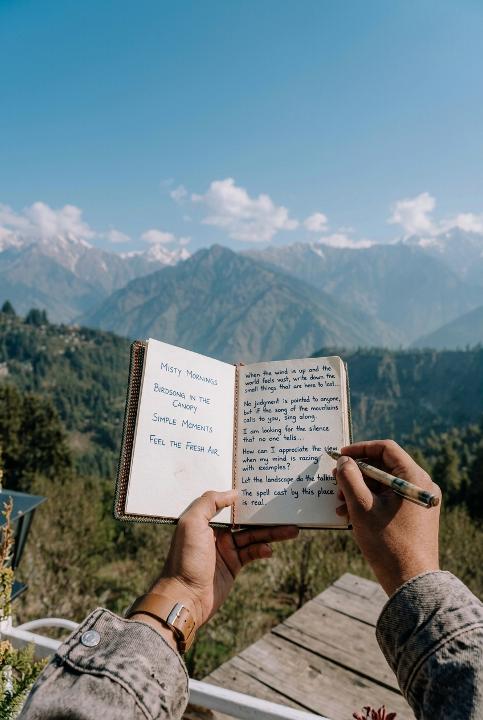 MISTY MORNINGS
BIRDSONG IN THE
CANOPY
SIMPLE MOMENTS
FEEL THE FRESH AIR
When the wind is up and the
world feels vast, write down the
small things that are here to last...
No judgment is pointed to anyone,
but if the song of the mountains
calls to you, sing along.
I am looking for the silence
that no one tells...
How can I appreciate the view
when my mind is racing
with examples?
Let the landscape do the talking
The spell cast by this place
is real...